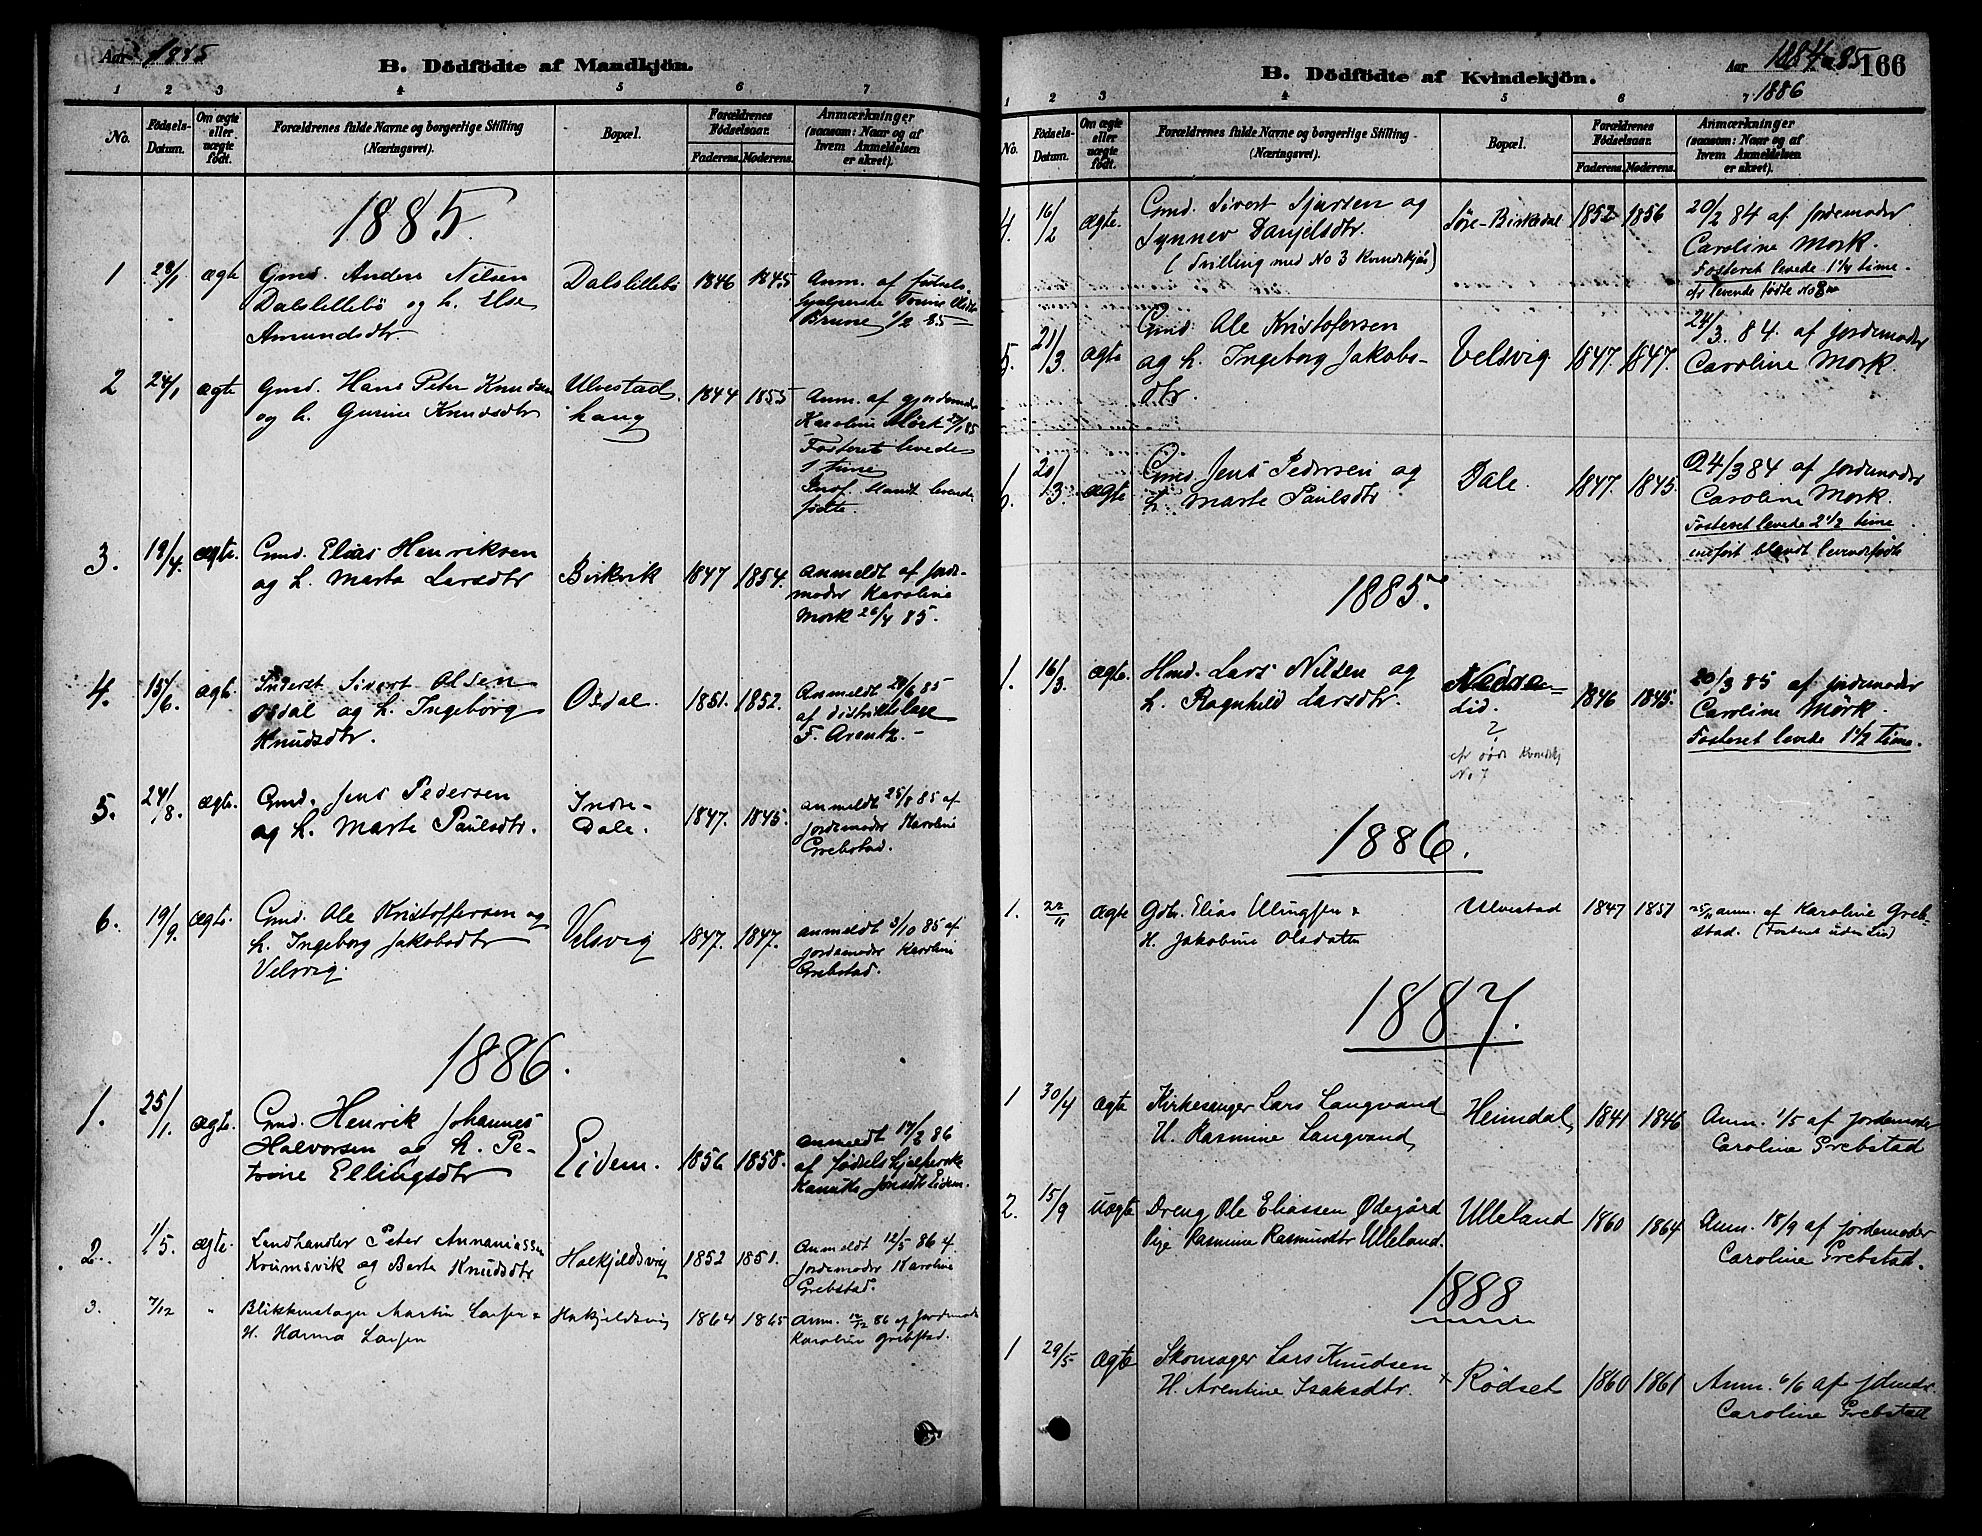 Aar 1885
B. Dödfödte af Mandkjön.
1 2 3 4 5 6 7
No.
Födsels-Datum.
Om ægte eller uægte födt.
Forældrenes fulde Navne og borgerlige Stilling
(Næringsvei).
Bopæl.
Forældrenes Födselsaar.
Faderens. Moderens.
Anmærkninger
(saasom: Naar og af
hvem Anmeldelsen
er skeet).
1885
1 28/1 ægte Gmd. Anders Nilsen Dalslillebö 1846 1845 Anm. af fødsels-
Dalslillebö og h. Else
Amundsdtr. Brune 1/2 85
2 24/1 ægte Gmd. Hans Peter Knudsen Ulvestad 1844 1855 Anm. af gjordemoder
og h. Gurine Knudsdtr haug Karoline Mörk 27/1 85
Fosteret levede
1 time
Indf. blandt levende
fødte.
3. 19/4. ægte. Gmd. Elias Henriksen
og h. Marta Larsdtr Birkvik 1847 1854. Anmeldt af jorde-
moder Karoline
Mork 26/4 85.
4. 15/6. ægte. Inderst Sivert Olsen
Osdal og h. Ingeborg Osdal. 1851. 1852. Anmeldt 20/6 85
Knudsdtr. af distriktslæge
F. Arentz. -
5. 24/8. ægte. Gmd. Jens Pedersen Indre- 1847. 1845. anmeldt 25/8 85 af
og h. Marte Paulsdtr. Dale. jordemoder Karoline
Grebstad.
6. 19/9. ægte. Gmd. Ole Kristoffersen og Velsvig 1847. 1847. anmeldt 3/10 85 af
h. Ingeborg Jakobsdtr jordemoder Karoline
Velsvig. Grebstad.
1886.
1. 25/1. ægte. Gmd. Henrik Johannes
Halvorsen og h. Pe- Eidem. 1856 1858. anmeldt 17/2 86
trine Ellingsdtr af fødselshjelperske
Jonsdtr Eidem.
2. 1/5. ægte. Landhandler Peter Annaniassen Hakjeldsvig 1852 1851. Anmeldt 12/5 86 af
Krumsvik og Berte Knudsdtr jordemoder Karoline
Grebstad.
3. 7/12 " Blikkenslager Martin Larsen & Hakjeldsvig 1864 1865 Anm. 12/12 86 af Jordemoder
H. Hanna Larsen Karoline Grebstad.
Aar 1884 85 166
1886
B. Dödfödte af Kvindekjön.
1 2 3 4 5 6 7
No.
Födsels-Datum.
Om ægte eller uægte födt.
Forældrenes fulde Navne og borgerlige Stilling
(Næringsvei).
Bopæl.
Forældrenes Födselsaar.
Faderens. Moderens.
Anmærkninger
(saasom: Naar og af
hvem Anmeldelsen
er skeet).
4. 16/2 ægte. Gmd. Sivert Sjursen og Söre-Birkedal 1852 1856 20/2 84 af jordemoder
Synnev Danjelsdtr. Caroline Mork.
(Tvilling med No 3 Kvindekjön) Fosteret levede 1 1/4 time.
cfr levende fødte No 8
5. 21/3. ægte Gmd. Ole Kristofersen Velsvig 1847. 1847. 24/3. 84. af jordemoder
og h. Ingeborg Jakobs- Caroline Mork.
dtr.
6. 20/3. ægte Gmd. Jens Pedersen og Dale. 1847. 1845. 24/3 84 af jordemoder
h. Marte Paulsdtr Caroline Mork.
Fosteret levede 2 1/2 time
indført blandt levendefødte
1885.
1. 16/3. ægte. Hmd. Lars Nilsen og 1846 1845. 20/3 85 af jordemoder
h. Ragnhild Larsdtr. lid. Caroline Mørk.
? Fosteret levede 1 1/2 time.
cfr døde Kvindekj
No 7
1886.
1. 22/11 ægte Gdbr. Elias Ellingsen & Ulvestad 1847 1851 25/11 anm. af Karoline Greb-
H. Jakobine Olsdatter stad. (Fosteret uden Liv)
1887.
1 30/4 ægte Kirkesanger Lars Langvand Heimdal 1841 1846 Anm. 1/5 af jordemoder
H. Rasmine Langvand Caroline Grebstad
2. 15/9 uægte Dreng Ole Eliassen Ødegård Ulleland 1860 1864 Anm. 18/9 af jordemoder
Pige Rasmine Rasmusdtr Ulleland. Caroline Grebstad.
1888
1 29/5 ægte Skomager Lars Knudsen
H. Arentine Isaksdtr. × Rödset 1860 1861 Anm. 6/6 af jdmdr.
Caroline Grebstad